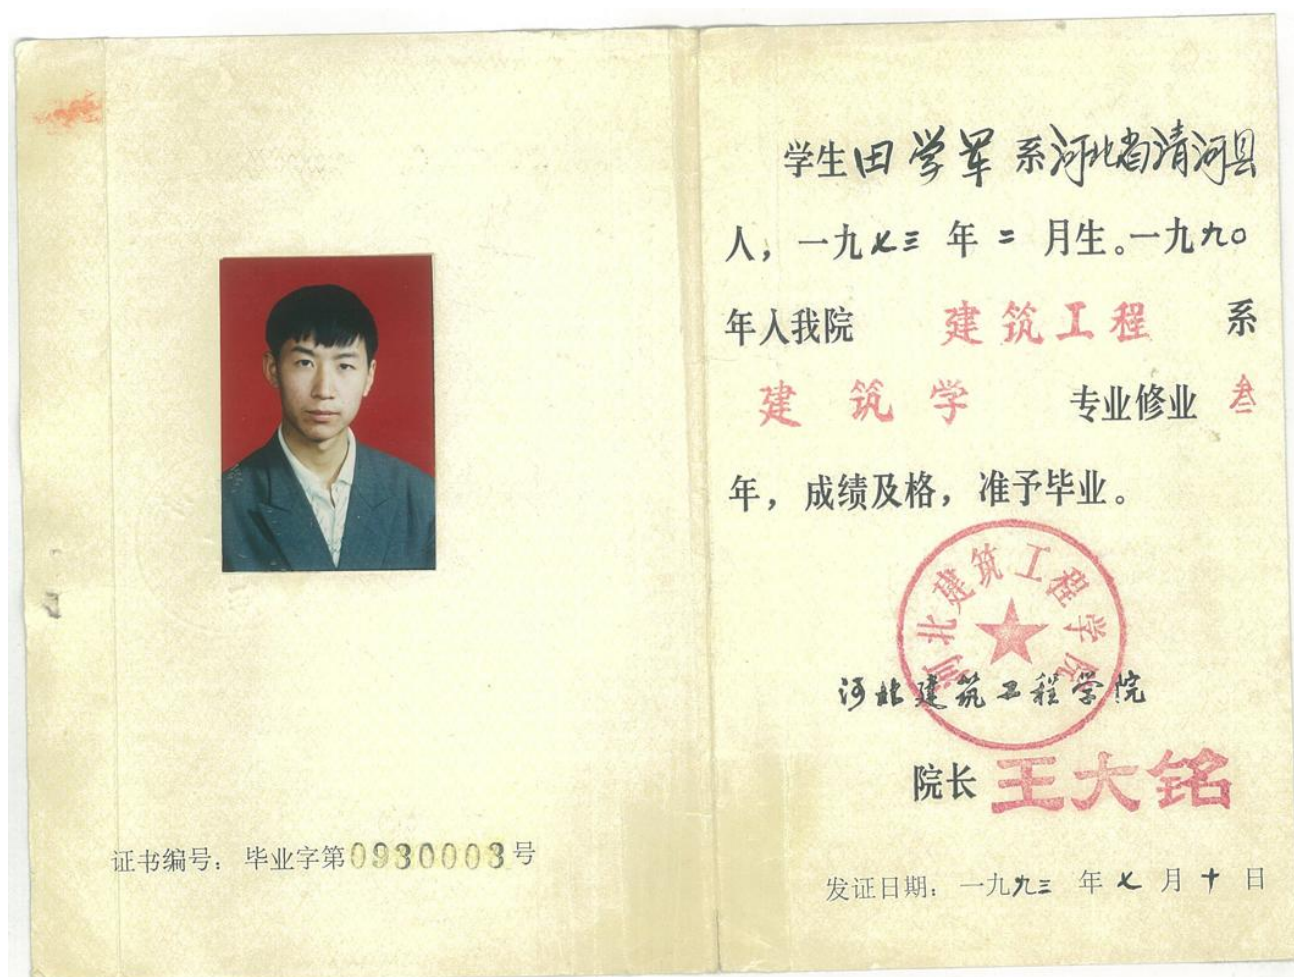 证书编号：毕业字第0930003号
学生田学军系河北省清河县
人，一九七三年二月生。一九九〇
年入我院 建筑工程 系
建筑学 专业修业 叁
年，成绩及格，准予毕业。
河北建筑工程学院
河北建筑工程学院
院长 王大铭
发证日期：一九九三年七月十日